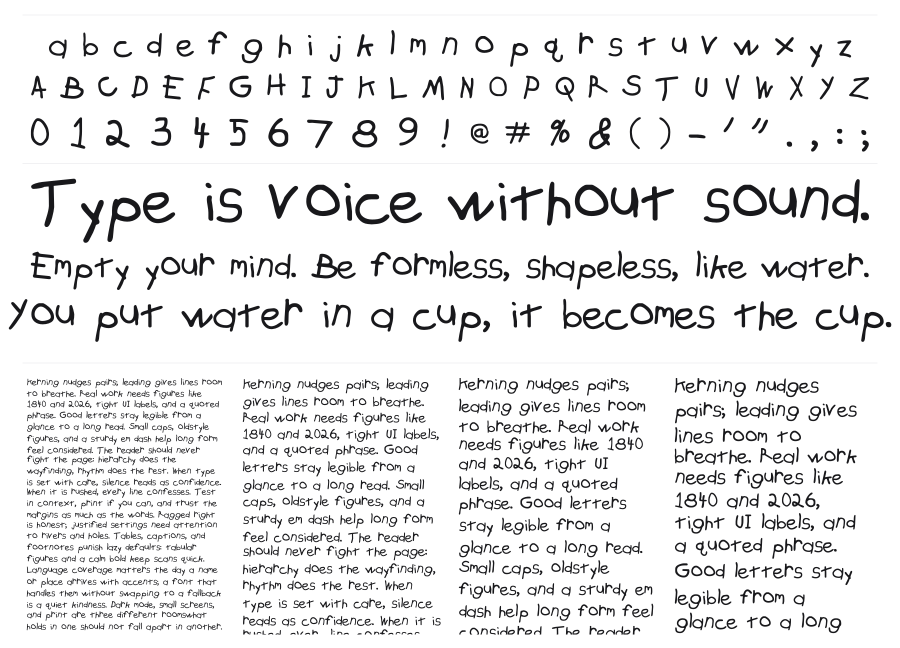 a b c d e f g h i j k l m n o p q r s t u v w x y z
A B C D E F G H I J K L M N O P Q R S T U V W X Y Z
0 1 2 3 4 5 6 7 8 9 ! @ # % & ( ) – ' " . , : ;
Type is voice without sound.
Empty your mind. Be formless, shapeless, like water.
You put water in a cup, it becomes the cup.
Kerning nudges pairs; leading gives lines room
to breathe. Real work needs figures like
1840 and 2026, tight UI labels, and a quoted
phrase. Good letters stay legible from a
glance to a long read. Small caps, oldstyle
figures, and a sturdy em dash help long form
feel considered. The reader should never
fight the page: hierarchy does the
wayfinding, rhythm does the rest. When type
is set with care, silence reads as confidence.
When it is rushed, every line confesses. Test
in context, print if you can, and trust the
margins as much as the words. Ragged right
is honest; justified settings need attention
to rivers and holes. Tables, captions, and
footnotes punish lazy defaults: tabular
figures and a calm bold keep scans quick.
Language coverage matters the day a name
or place arrives with accents; a font that
handles them without swapping to a fallback
is a quiet kindness. Dark mode, small screens,
and print are three different rooms:what
holds in one should not fall apart in another.
Kerning nudges pairs; leading
gives lines room to breathe.
Real work needs figures like
1840 and 2026, tight UI labels,
and a quoted phrase. Good
letters stay legible from a
glance to a long read. Small
caps, oldstyle figures, and a
sturdy em dash help long form
feel considered. The reader
should never fight the page:
hierarchy does the wayfinding,
rhythm does the rest. When
type is set with care, silence
reads as confidence. When it is
rushed, every line confesses.
Kerning nudges pairs;
leading gives lines room
to breathe. Real work
needs figures like 1840
and 2026, tight UI
labels, and a quoted
phrase. Good letters
stay legible from a
glance to a long read.
Small caps, oldstyle
figures, and a sturdy em
dash help long form feel
considered. The reader
Kerning nudges
pairs; leading gives
lines room to
breathe. Real work
needs figures like
1840 and 2026,
tight UI labels, and
a quoted phrase.
Good letters stay
legible from a
glance to a long